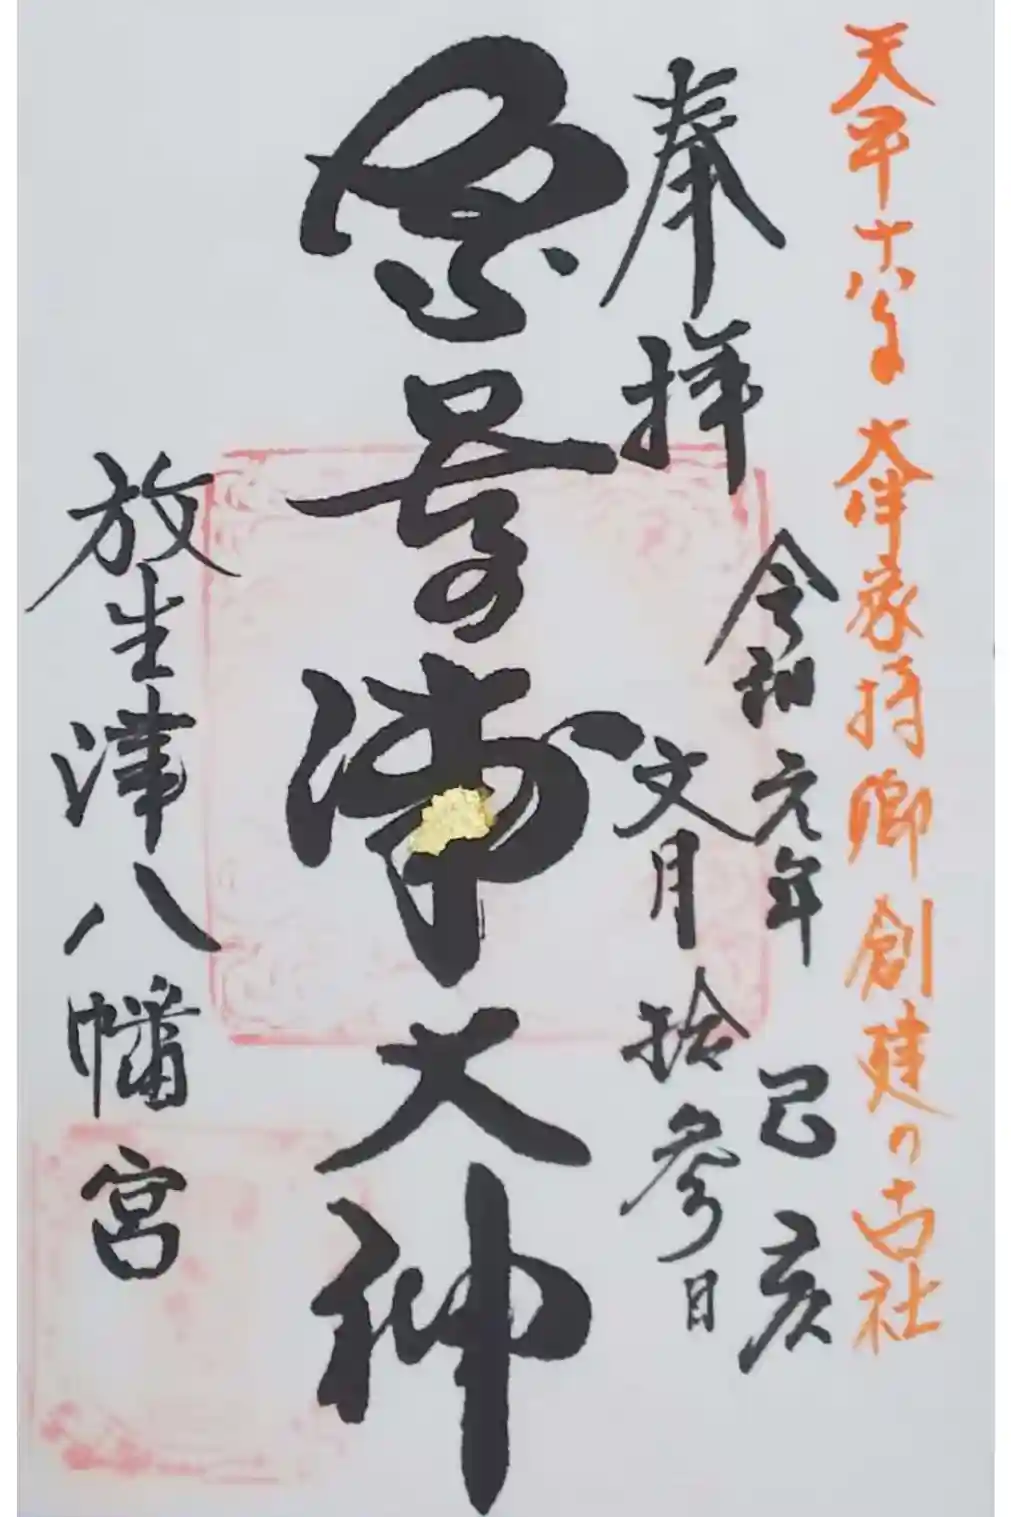 天平十八年 大伴家持卿創建の古社
奉拝
令和元年 己亥
文月拾参日
奈呉の浦大神
放生津八幡宮